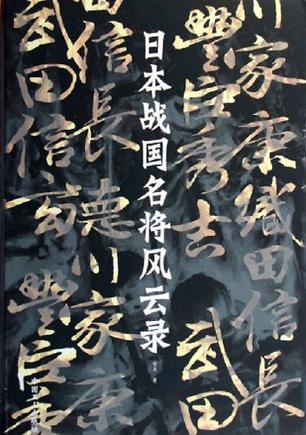 川家康織田信長
豐臣秀吉武田
日本战国名将风云录
田信長德川家
武田信玄豐臣